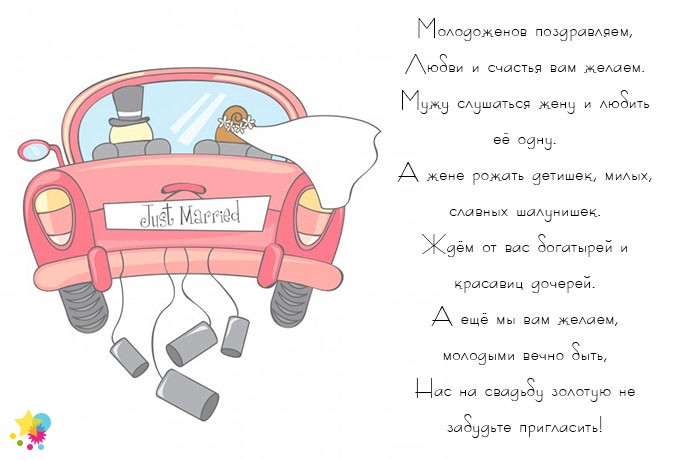 Молодоженов поздравляем,
Любви и счастья вам желаем.
Мужу слушаться жену и любить
её одну.
А жене рожать детишек, милых,
славных шалунишек.
Ждём от вас богатырей и
красавиц дочерей.
А ещё мы вам желаем,
молодыми вечно быть,
Нас на свадьбу золотую не
забудьте пригласить!
Just Married